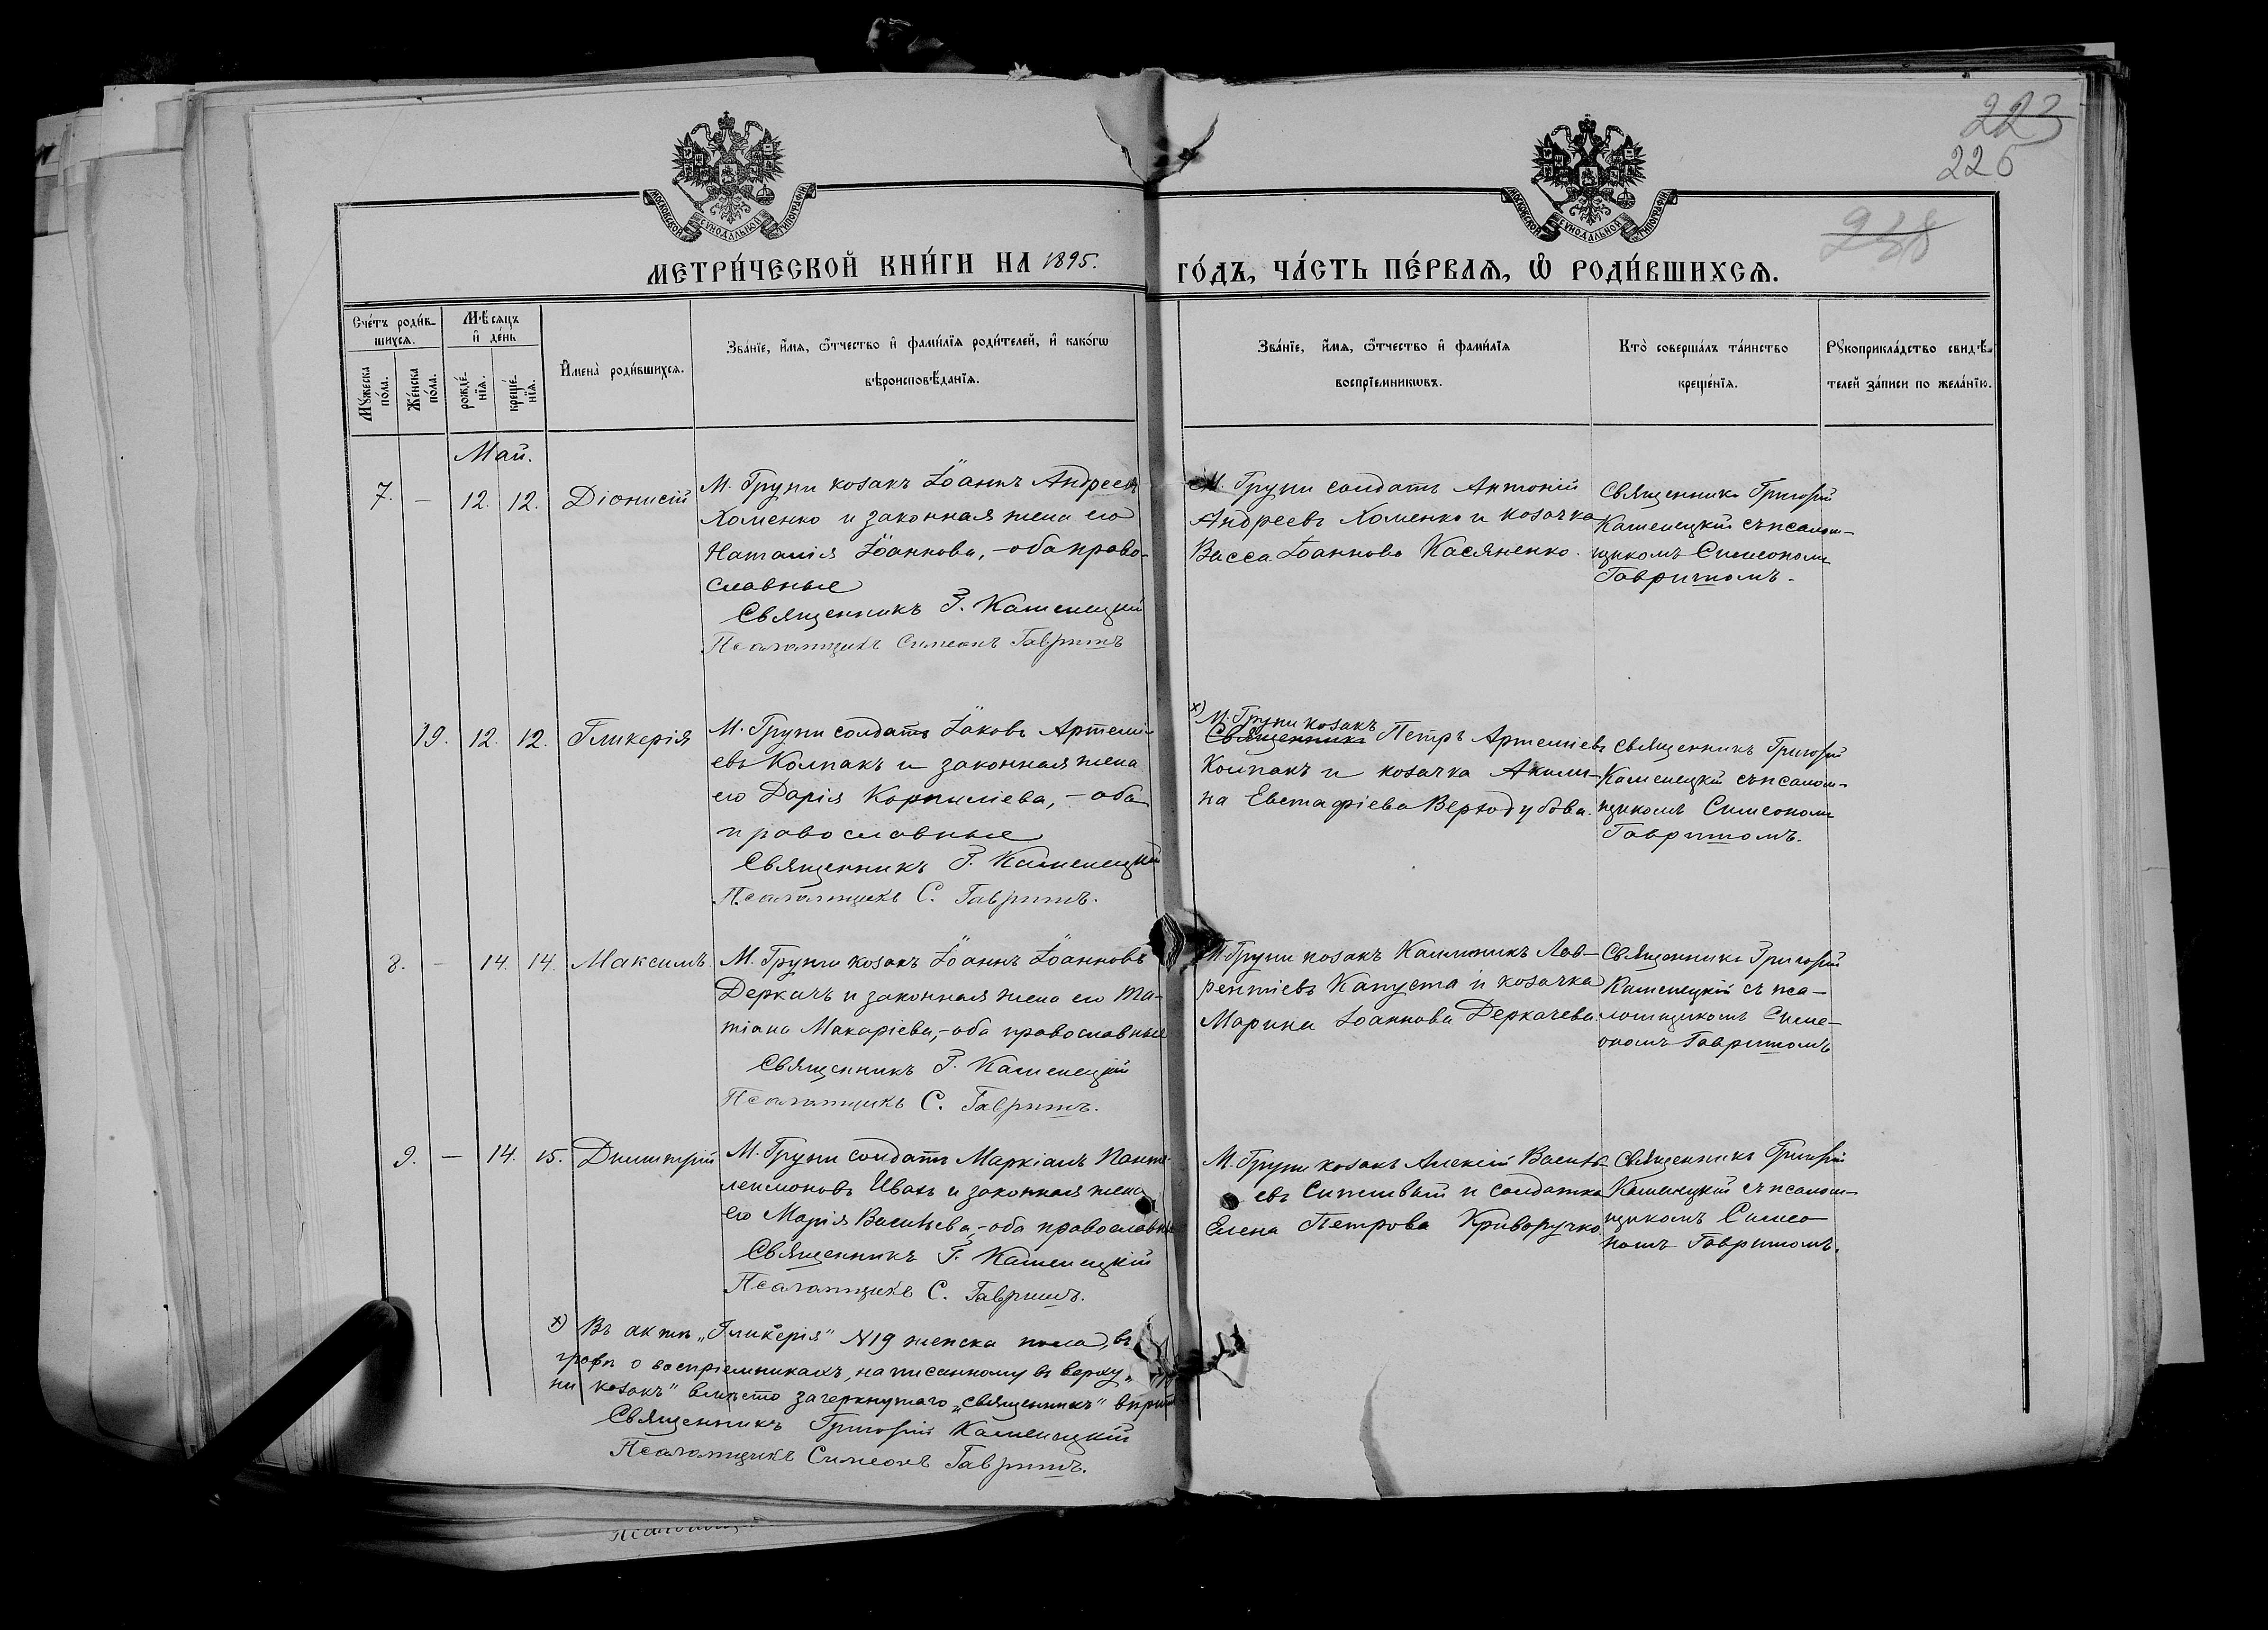 223
226
238
МОСКОВСКОЙ СѴНОДАЛЬНОЙ ТИПОГРАФІИ
МОСКОВСКОЙ СѴНОДАЛЬНОЙ ТИПОГРАФІИ
МЕТРИ́ЧЕСКОЙ КНИ́ГИ НА 1895.
ГО́ДЪ, ЧА́СТЬ ПЕ́РВАѦ, Ѽ РОДИ́ВШИХСѦ.
Сче́тъ роди́в-
шихсѧ.
Мꙋ́жеска по́ла.
Же́нска по́ла.
Мѣ́сѧцъ
и҆ де́нь
рожде́-нїѧ.
креще́-нїѧ.
И҆мена̀ роди́вшихсѧ.
Зва́нїе, и҆́мѧ, ѻ҆́тчество и҆ фами́лїѧ роди́телей, и҆ како́гѡ
вѣроисповѣ́данїѧ.
Зва́нїе, и҆́мѧ, ѻ҆́тчество и҆ фами́лїѧ
воспрїе́мникѡвъ.
Кто̀ соверша́лъ та́инство
креще́нїѧ.
Рꙋкоприкла́дство свидѣ́-
телей за́писи по жела́нїю.
Май.
7. — 12. 12. Діонисій
М. Груни козакъ Іоаннъ Андреевъ
Хоменко и законная жена его
Наталія Іоаннова, - оба право-
славные
Священникъ Г. Каменецкій
Псаломщикъ Симеонъ Гавришъ
М. Груни солдатъ Антоній
Андреевъ Хоменко и козачка
Васса Іоаннова Касяненко.
Священникъ Григорій
Каменецкій съ псалом-
щикомъ Симеономъ
Гавришомъ.
19. 12. 12. Гликерія
М. Груни солдатъ Іаковъ Артемі-
евъ Колпакъ и законная жена
его Дарія Корниліева, - оба
православные
Священникъ Г. Каменецкій
Псаломщикъ С. Гавришъ.
х) М. Груни козакъ
Священникъ Петръ Артеміевъ
Колпакъ и козачка Акили-
на Евстафіева Верходубова.
Священникъ Григорій
Каменецкій съ псалом-
щикомъ Симеономъ
Гавришомъ.
8. — 14. 14. Максимъ.
М. Груни козакъ Іоаннъ Іоанновъ
Деркачъ и законная жена его Та-
тіана Макаріева, - оба православные
Священникъ Г. Каменецкій
Псаломщикъ С. Гавришъ.
М. Груни козакъ Калиникъ Лав-
рентіевъ Капуста и козачка
Марина Іоаннова Деркачева.
Священникъ Григорій
Каменецкій съ пса-
ломщикомъ Симе-
ономъ Гавришомъ
9. — 14. 15. Димитрій
М. Груни солдатъ Маркіанъ Панте-
леимоновъ и законная жена
его Марія Васильева, - оба православные
Священникъ Г. Каменецкій
Псаломщикъ С. Гавришъ.
М. Груни козакъ Алексій Василь-
евъ и солдатка
Елена Петрова Криворучко.
Священникъ Григорій
Каменецкій съ псалом-
щикомъ Симео-
номъ Гавришомъ.
х) Въ актѣ „Гликерія" N19 женска пола, въ
графѣ о воспріемникахъ, написанному въ верху „
ни козакъ" вмѣсто зачеркнутаго „священникъ"
Священникъ Григорій Каменецкій
Псаломщикъ Симеонъ Гавришъ.